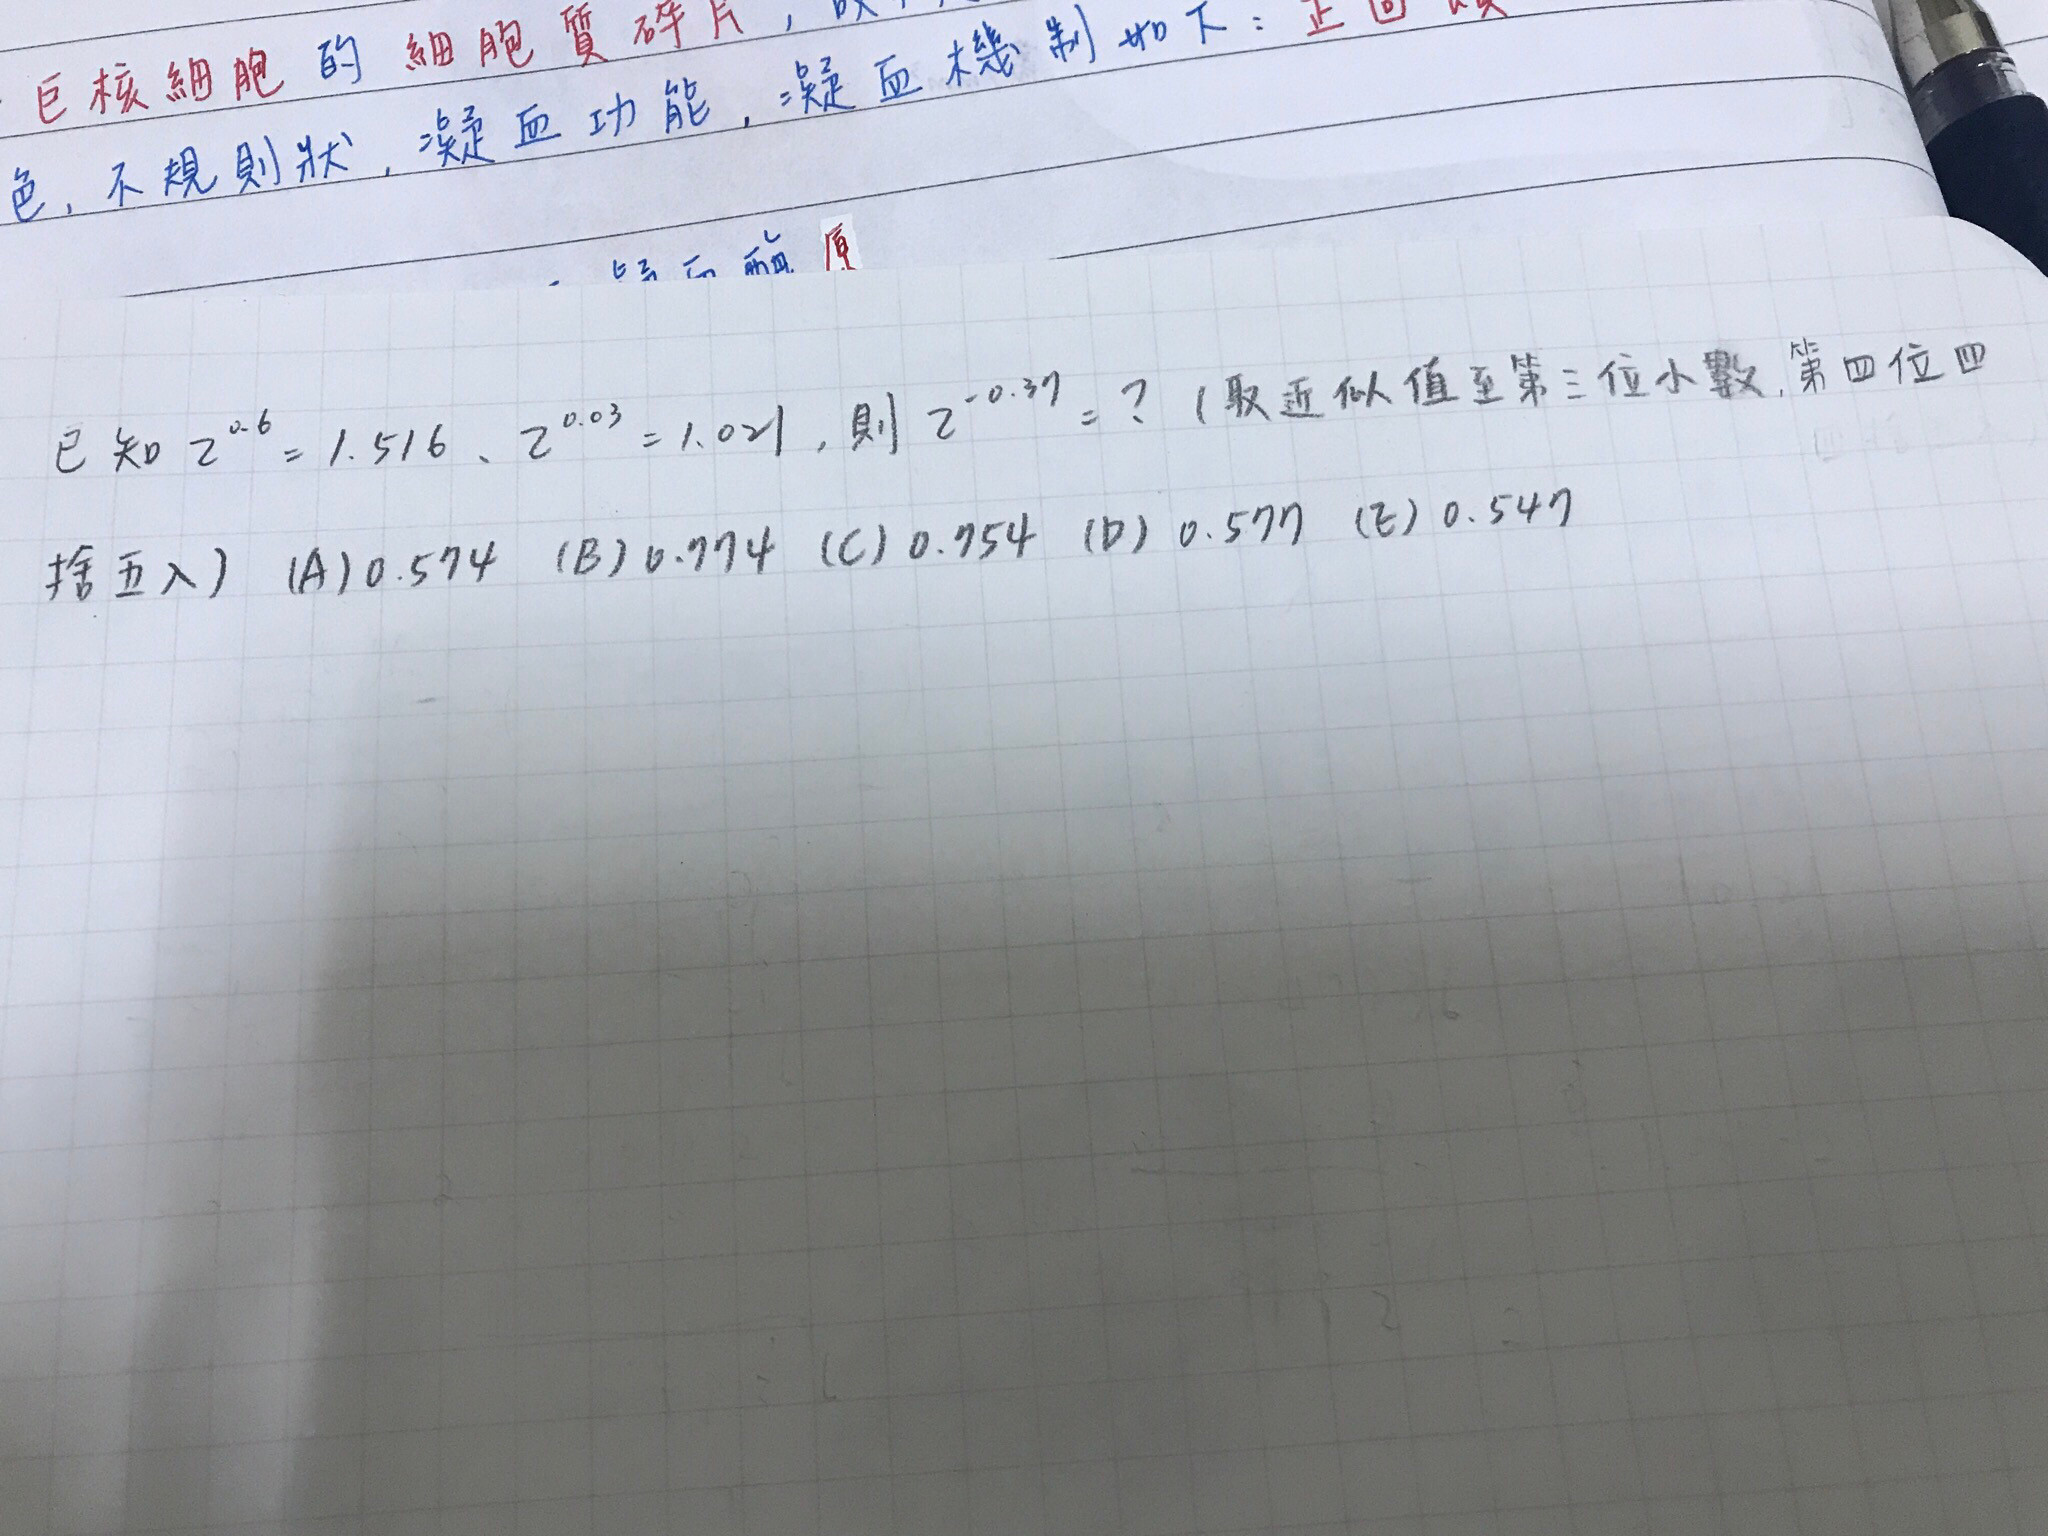 巨核細胞的細胞質碎片,
色,不規則狀,凝血功能,凝血機制如下:正回饋
凝血酶原
已知 2^0.6 = 1.516、2^0.03 = 1.021,則 2^-0.37 = ? (取近似值至第三位小數,第四位四
捨五入) (A) 0.574 (B) 0.774 (C) 0.754 (D) 0.577 (E) 0.547